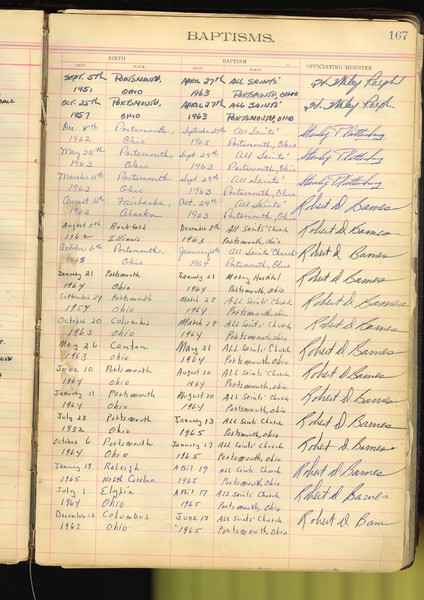 BAPTISMS. 167
BIRTH BAPTISM OFFICIATING MINISTER
DATE PLACE DATE PLACE
SEPT. 5th PORTSMOUTH, APRIL 27th ALL SAINTS'
1951 OHIO 1963 PORTSMOUTH, OHIO
OCT. 25th PORTSMOUTH, APRIL 27th ALL SAINTS'
1957 OHIO 1963 PORTSMOUTH, OHIO
Dec. 8th Portsmouth, September All Saints'
1962 Ohio Portsmouth, Ohio
May 25th Portsmouth, Sept. 29th All Saints'
1963 Ohio 1963 Portsmouth, Ohio
March 11th Portsmouth Sept. 29th All Saints'
1963 Ohio 1963 Portsmouth, Ohio
August Fairbanks, Oct. 24th All Saints' Robert D Barnes
1963 Alaska 1963 Portsmouth, Ohio
August Rockford December 8th All Saints' Church Robert D Barnes
1962 Illinois 1963 Portsmouth, Ohio
October 6th Portsmouth, January All Saints Church Robert D Barnes
Ohio 1964 Portsmouth, Ohio
January 21 Portsmouth January Mercy Hospital Robert D Barnes
1964 Ohio 1964 Portsmouth, Ohio
September 24 Portsmouth March 28 All Saints' Church Robert D Barnes
1954 Ohio 1964 Portsmouth, Ohio
October 20 Columbus March 28 All Saints' Church Robert D Barnes
1963 Ohio 1964 Portsmouth, Ohio
May 26 Canton May 31 All Saints' Church Robert D Barnes
1963 Ohio 1964 Portsmouth, Ohio
June 10 Portsmouth August 20 All Saints' Church Robert D Barnes
1964 Ohio 1964 Portsmouth, Ohio
January 11 Portsmouth August 20 All Saints' Church Robert D Barnes
1964 Ohio 1964 Portsmouth, Ohio
July 23 Portsmouth January 13 All Saints' Church Robert D Barnes
1932 Ohio 1965 Portsmouth, Ohio
October 6 Portsmouth January 17 All Saints' Church Robert D Barnes
1964 Ohio 1965 Portsmouth, Ohio
January 19 Raleigh April 17 All Saints' Church Robert D Barnes
1965 North Carolina 1965 Portsmouth, Ohio
July 1 Elyria April 17 All Saints' Church Robert D Barnes
1964 Ohio 1965 Portsmouth, Ohio
December 12 Columbus June 13 All Saints' Church Robert D Barnes
1963 Ohio 1965 Portsmouth Ohio